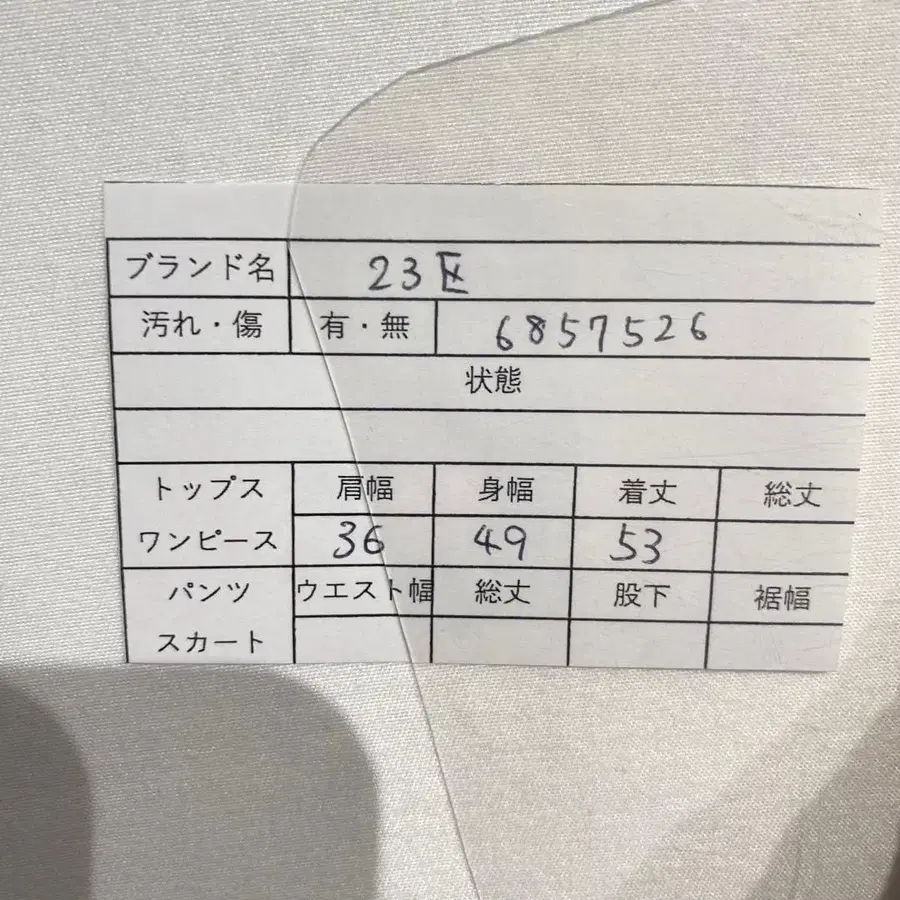 ブランド名 23区
汚れ・傷 有・無 6857526
状態
トップス 肩幅 身幅 着丈 総丈
ワンピース 36 49 53
パンツ ウエスト幅 総丈 股下 裾幅
スカート